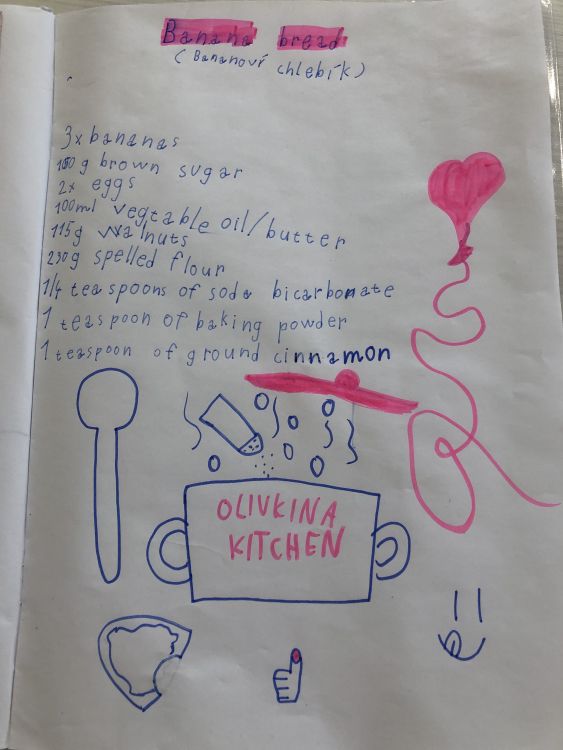 Banana bread
(Bananoví chlebík)
3x bananas
100g brown sugar
2x eggs
100ml vegtable oil/butter
115g walnuts
230g spelled flour
1/4 teaspoons of soda bicarbonate
1 teaspoon of baking powder
1 teaspoon of ground cinnamon
OLIVKINA
KITCHEN